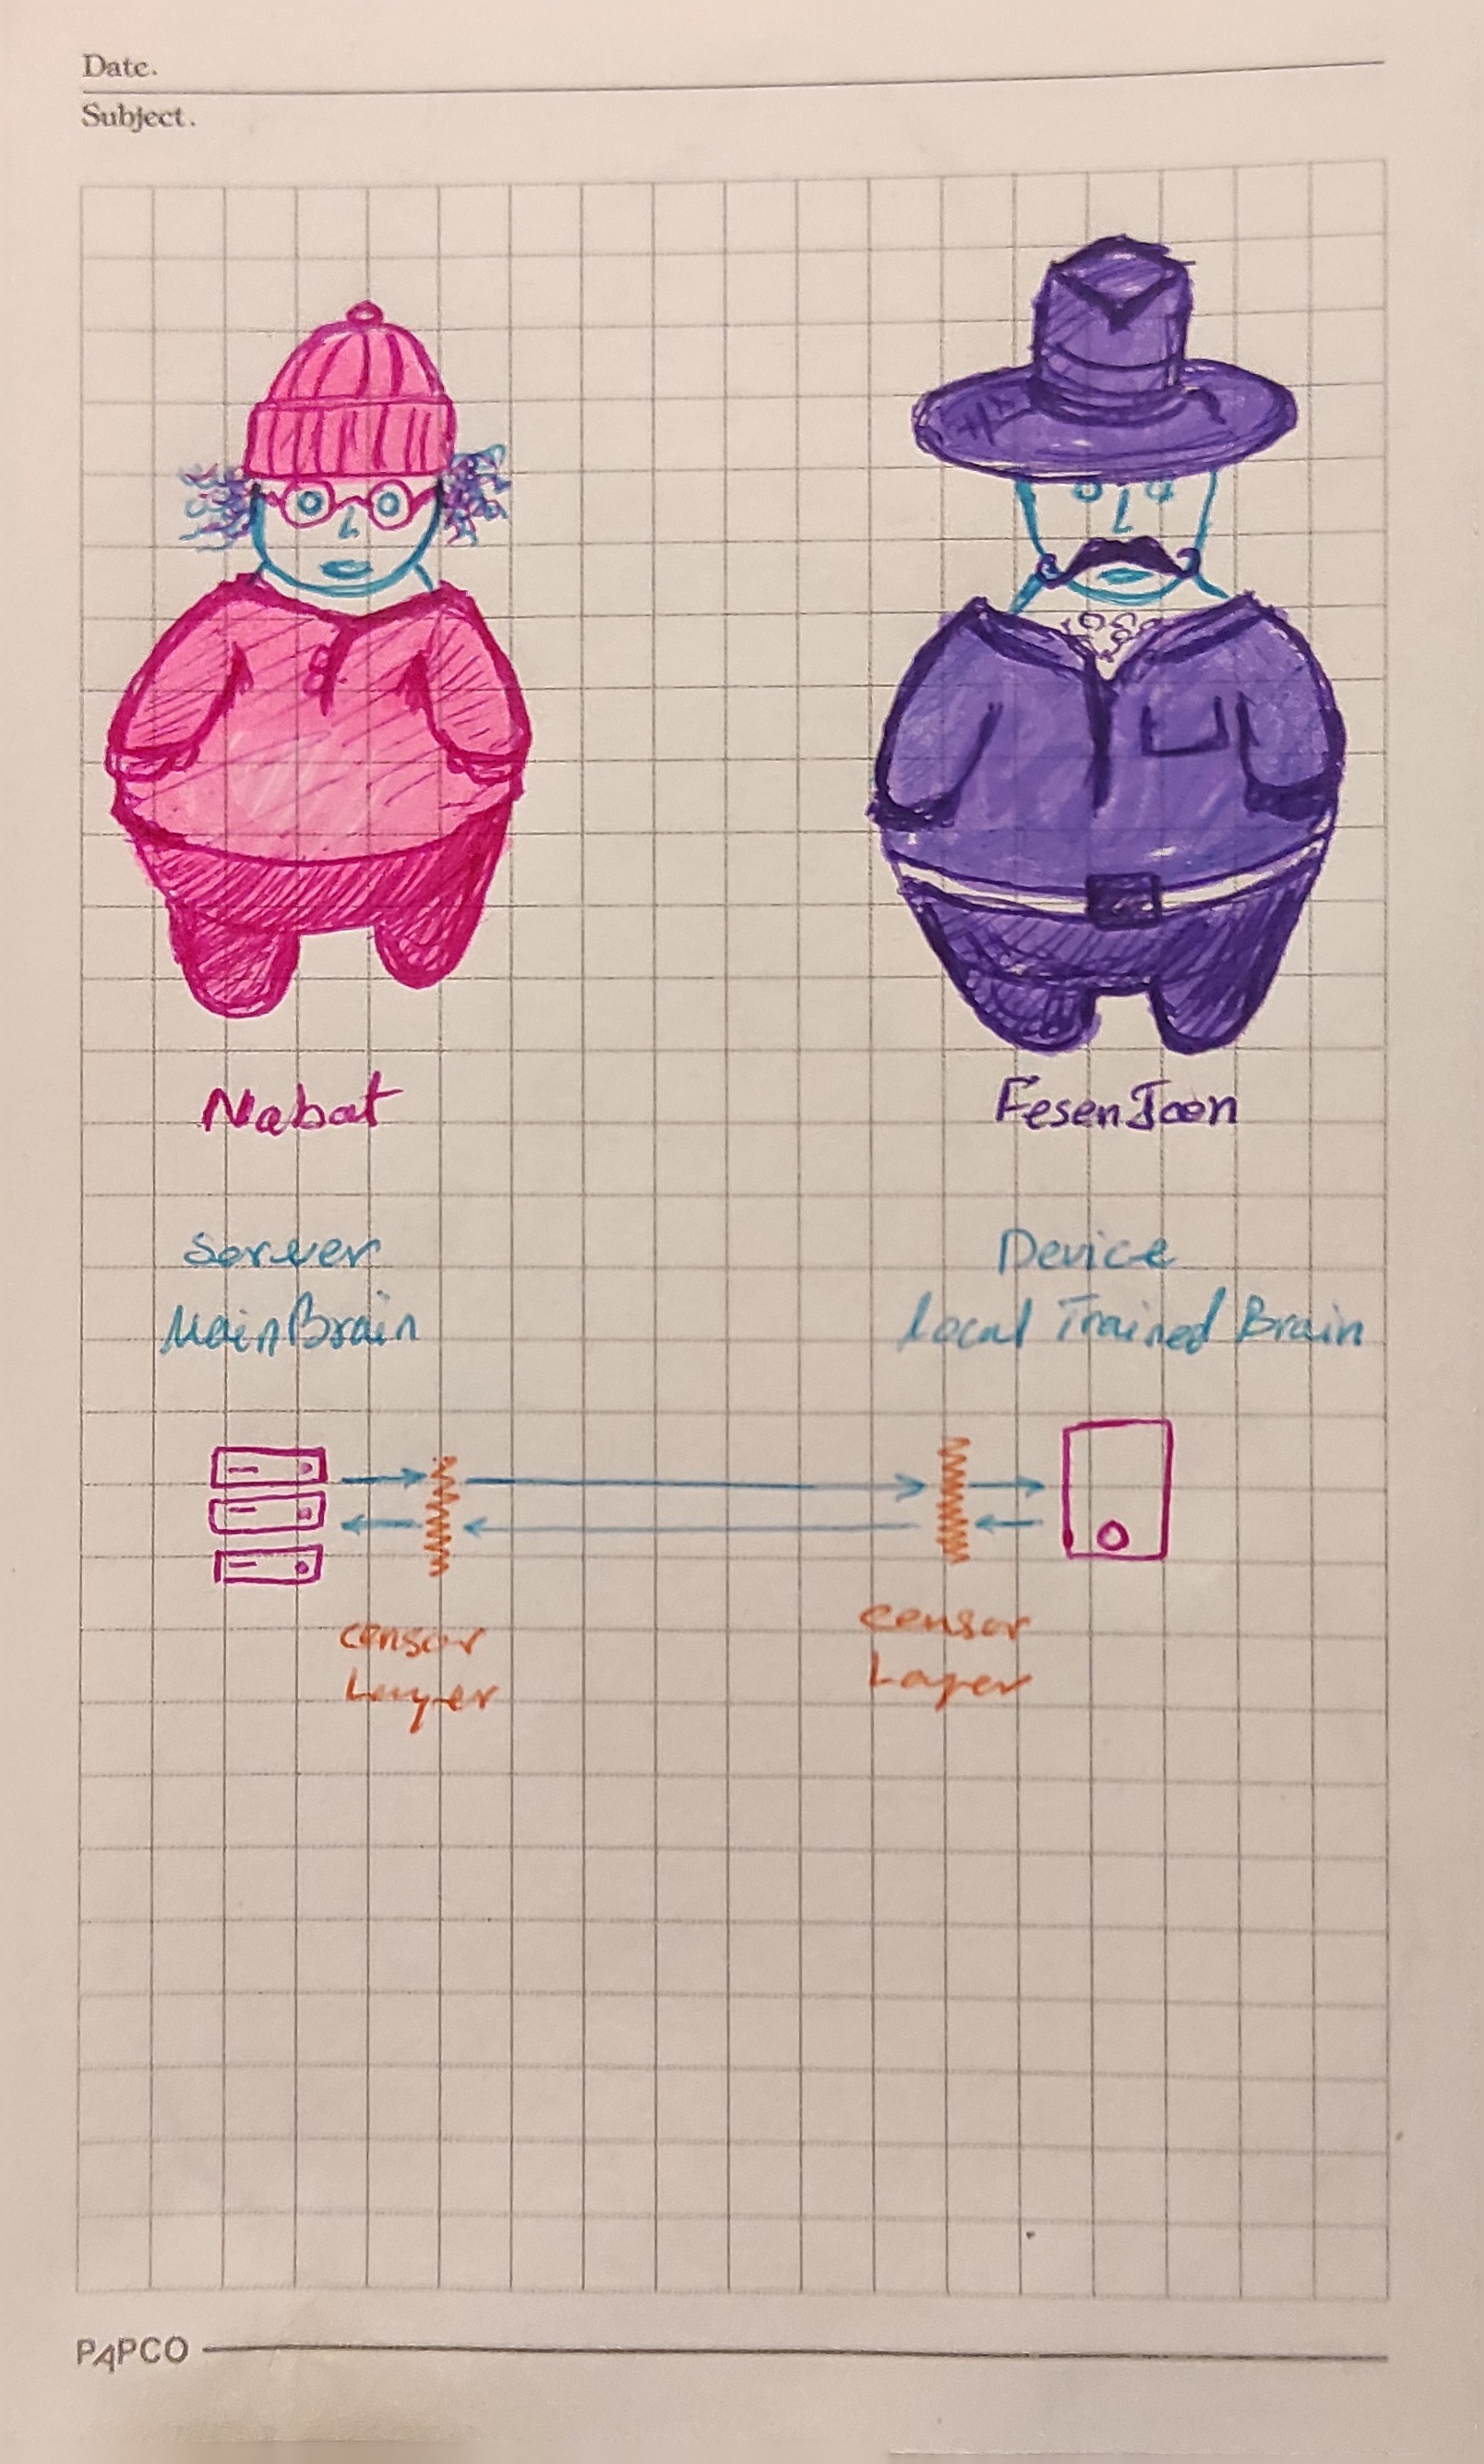 Date.
Subject.
Nabat
FesenJoon
Server
Main Brain
Device
Local Trained Brain
censor
Layer
censor
Layer
PAPCO